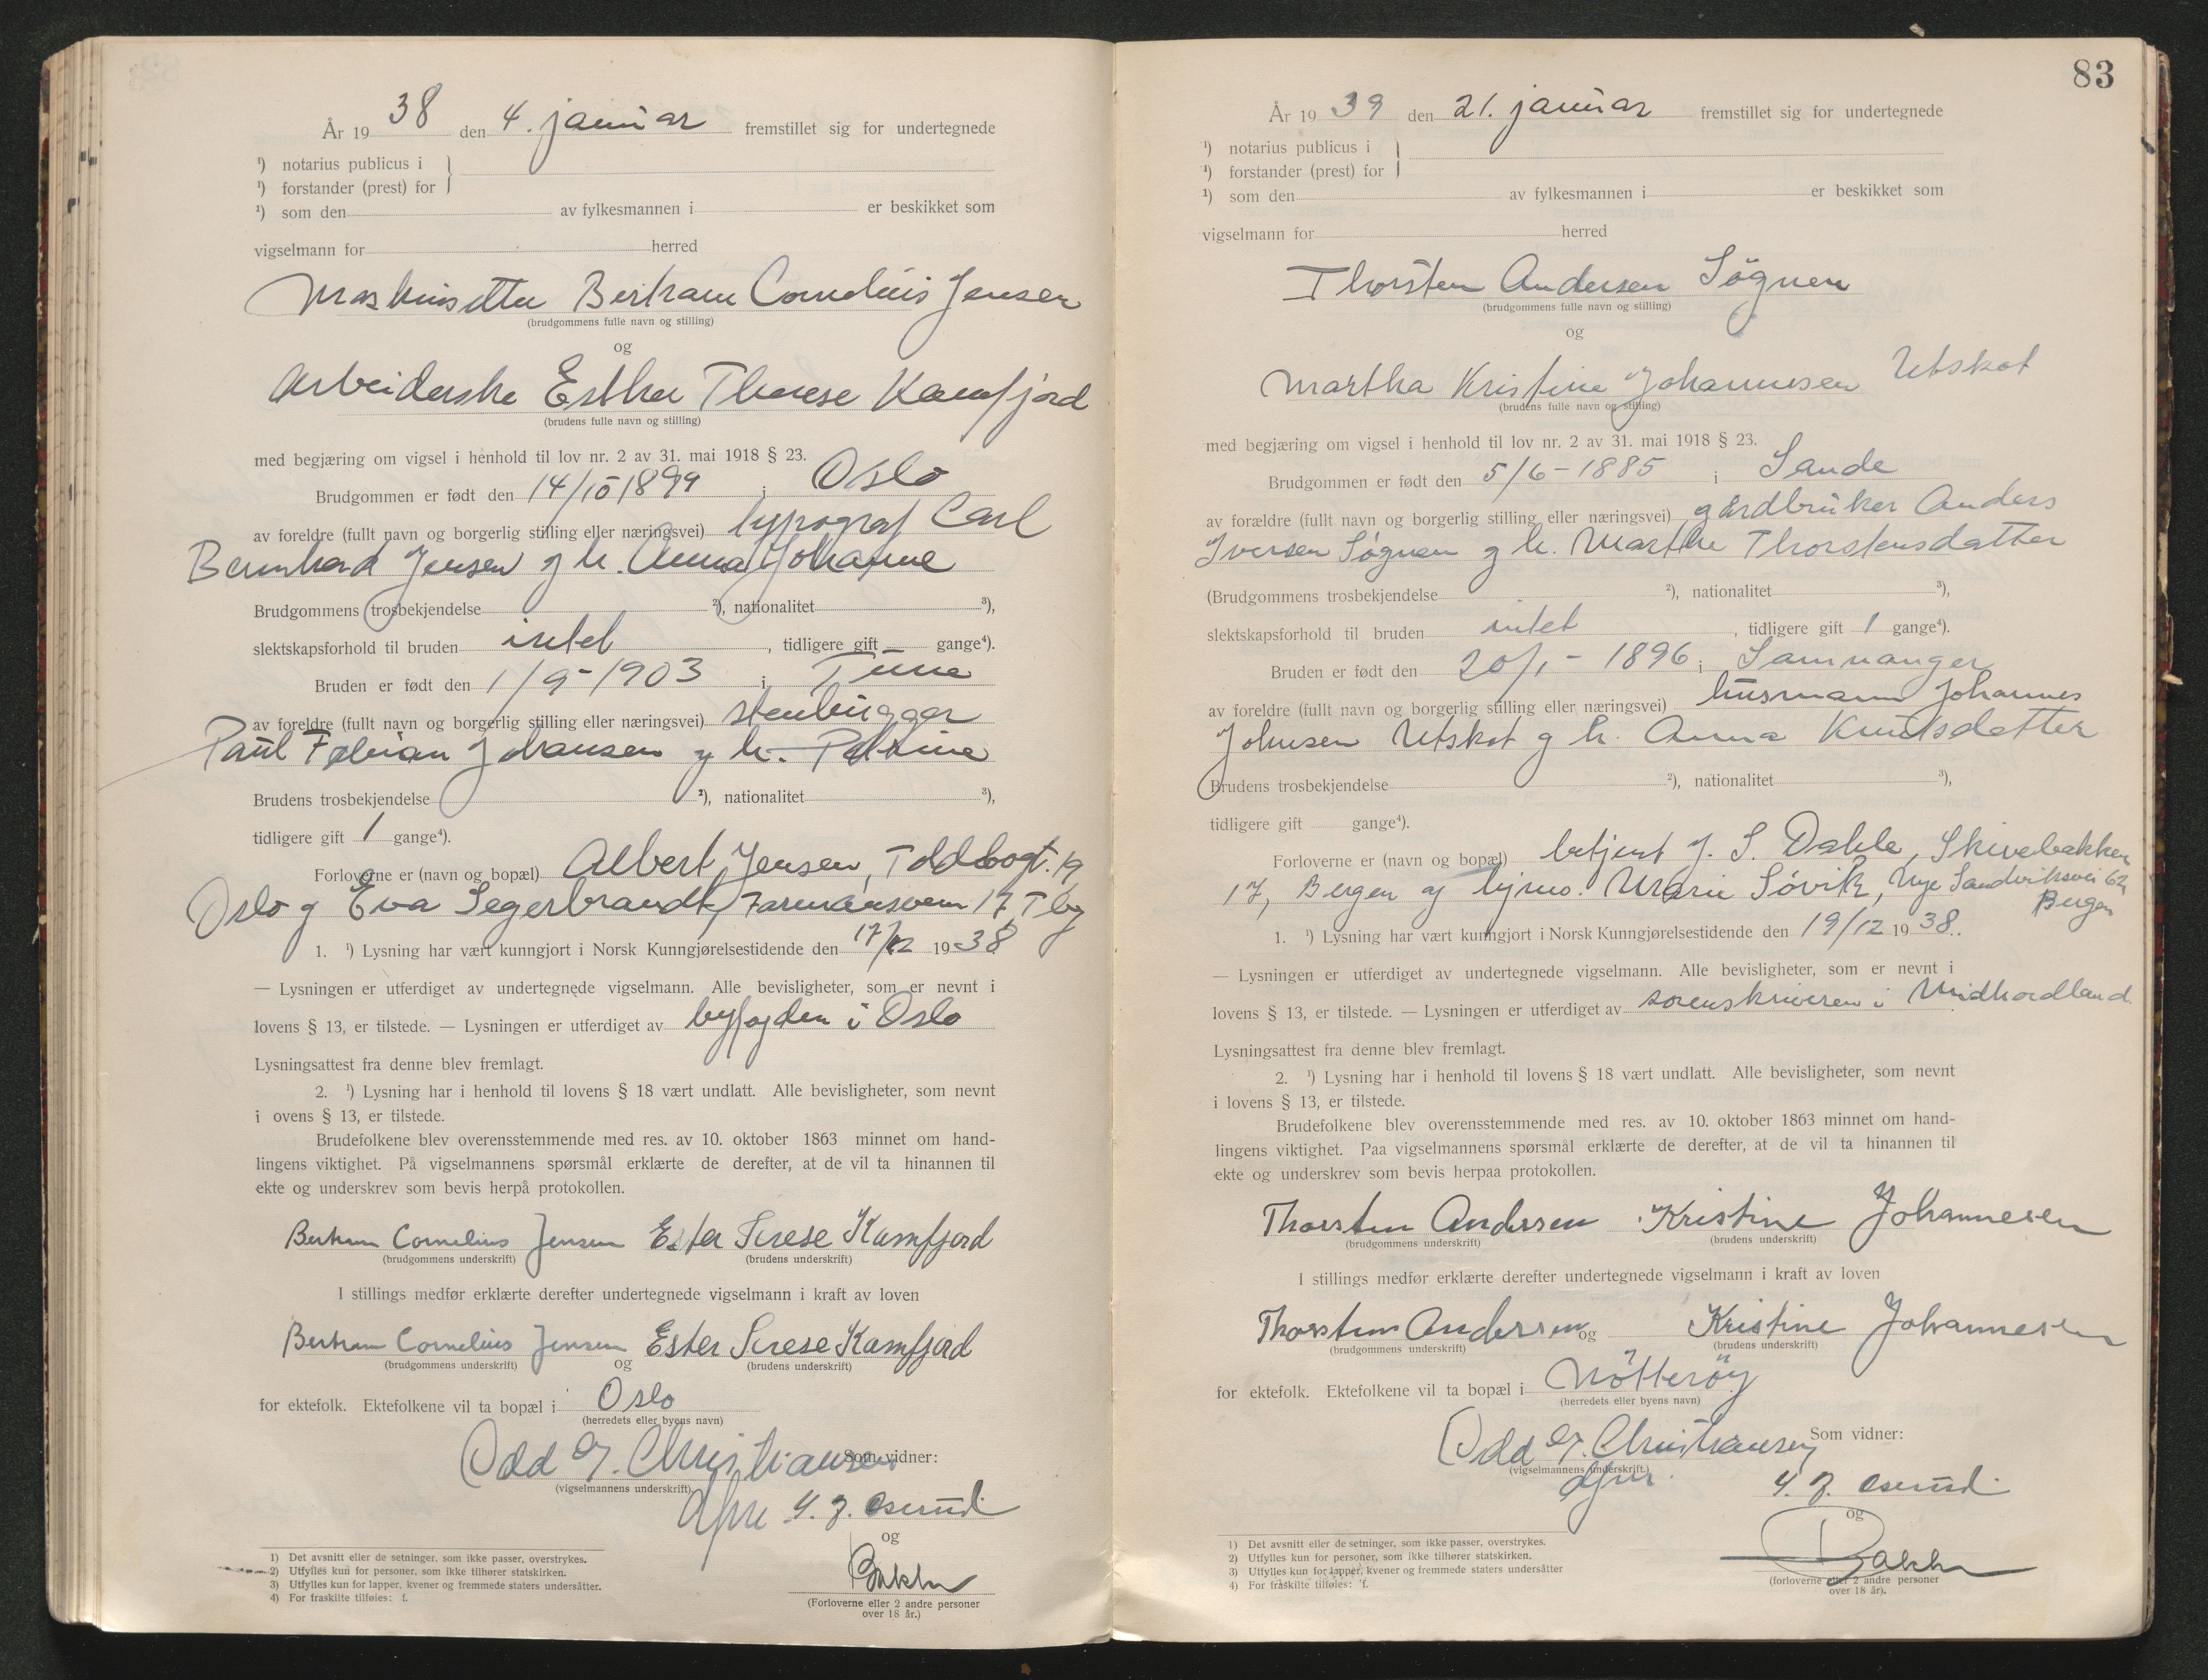 År 19 38 den 4. januar fremstillet sig for undertegnede
¹) notarius publicus i
¹) forstander (prest) for
¹) som den av fylkesmannen i er beskikket som
vigselmann for herred
Maskinsetter Bertram Cornelius Jensen
(brudgommens fulle navn og stilling)
og
Arbeiderske Esther Therese Kamfjord
(brudens fulle navn og stilling)
med begjæring om vigsel i henhold til lov nr. 2 av 31. mai 1918 § 23.
Brudgommen er født den 14/10 1899 i Oslo
av foreldre (fullt navn og borgerlig stilling eller næringsvei) typograf Carl
Bernhard Jensen og h. Anna Johanne
Brudgommens trosbekjendelse ²), nationalitet ³),
slektskapsforhold til bruden intet , tidligere gift — gange⁴).
Bruden er født den 1/9-1903 i Tune
av foreldre (fullt navn og borgerlig stilling eller næringsvei) stenhugger
Paul Fabian Johansen og h. Petrine
Brudens trosbekjendelse ²), nationalitet ³),
tidligere gift 1 gange⁴).
Forloverne er (navn og bopæl) Albert Jensen, Toldbogt. 19
Oslo og Eva Segerbrandt, Farmansveien 17 Tbg
1. ¹) Lysning har vært kunngjort i Norsk Kunngjørelsestidende den 17/12 19 38
— Lysningen er utferdiget av undertegnede vigselmann. Alle bevisligheter, som er nevnt i
lovens § 13, er tilstede. — Lysningen er utferdiget av byfogden i Oslo
Lysningsattest fra denne blev fremlagt.
2. ¹) Lysning har i henhold til lovens § 18 vært undlatt. Alle bevisligheter, som nevnt
i ovens § 13, er tilstede.
Brudefolkene blev overensstemmende med res. av 10. oktober 1863 minnet om hand-
lingens viktighet. På vigselmannens spørsmål erklærte de derefter, at de vil ta hinannen til
ekte og underskrev som bevis herpå protokollen.
Bertram Cornelius Jensen Ester Terese Kamfjord
(brudgommens underskrift) (brudens underskrift)
I stillings medfør erklærte derefter undertegnede vigselmann i kraft av loven
Bertram Cornelius Jensen og Ester Terese Kamfjord
(brudgommens underskrift) (brudens underskrift)
for ektefolk. Ektefolkene vil ta bopæl i Oslo
(herredets eller byens navn)
Odd G. Christiansen Som vidner:
(vigselmannens underskrift)
dfm Y. J. Oserud
og
Bakke
(Forloverne eller 2 andre personer
over 18 år.)
1) Det avsnitt eller de setninger, som ikke passer, overstrykes.
2) Utfylles kun for personer, som ikke tilhører statskirken.
3) Utfylles kun for lapper, kvener og fremmede staters undersåtter.
4) For fraskilte tilføies: f.
83
År 19 39 den 21. januar fremstillet sig for undertegnede
¹) notarius publicus i
¹) forstander (prest) for
¹) som den av fylkesmannen i er beskikket som
vigselmann for herred
Thorsten Andersen Sögnen
(brudgommens fulle navn og stilling)
og
Martha Kristine Johannesen Utskot
(brudens fulle navn og stilling)
med begjæring om vigsel i henhold til lov nr. 2 av 31. mai 1918 § 23.
Brudgommen er født den 5/6-1885 i Sande
av forældre (fullt navn og borgerlig stilling eller næringsvei) gårdbruker Anders
Iversen Sögnen og h. Marthe Thorstensdatter
(Brudgommens trosbekjendelse ²), nationalitet ³),
slektskapsforhold til bruden intet , tidligere gift 1 gange⁴).
Bruden er født den 20/1-1896 i Samnanger
av foreldre (fullt navn og borgerlig stilling eller næringsvei) husmann Johannes
Johnsen Utskot og h. Anna Knutsdatter
Brudens trosbekjendelse ²), nationalitet ³),
tidligere gift gange⁴).
Forloverne er (navn og bopæl) betjent J. S. Dahle, Skivebakken
17, Bergen og Marie Søvik, Nye Sandviksvei 62
Bergen
1. ¹) Lysning har vært kunngjort i Norsk Kunngjørelsestidende den 19/12 19 38.
— Lysningen er utferdiget av undertegnede vigselmann. Alle bevisligheter, som er nevnt i
lovens § 13, er tilstede. — Lysningen er utferdiget av sorenskriveren i Midthordland.
Lysningsattest fra denne blev fremlagt.
2. ¹) Lysning har i henhold til lovens § 18 vært undlatt. Alle bevisligheter, som nevnt
i lovens § 13, er tilstede.
Brudefolkene blev overensstemmende med res. av 10. oktober 1863 minnet om hand-
lingens viktighet. Paa vigselmannens spørsmål erklærte de derefter, at de vil ta hinannen til
ekte og underskrev som bevis herpaa protokollen.
Thorsten Andersen Kristine Johannesen
(brudgommens underskrift) (brudens underskrift)
I stillings medfør erklærte derefter undertegnede vigselmann i kraft av loven
Thorsten Andersen og Kristine Johannesen
(brudgommens underskrift) (brudens underskrift)
for ektefolk. Ektefolkene vil ta bopæl i Nötteröy
(herredets eller byens navn)
Odd G. Christiansen Som vidner:
(vigselmannens underskrift.)
dfm. Y. J. Oserud
og
Bakke
(forloverne eller 2 andre personer
over 18 år).
1) Det avsnitt eller de setninger, som ikke passer, overstrykes.
2) Utfylles kun for personer, som ikke tilhører statskirken.
3) Utfylles kun for lapper, kvener og fremmede staters undersåtter
4) For fraskilte tilføles: f.